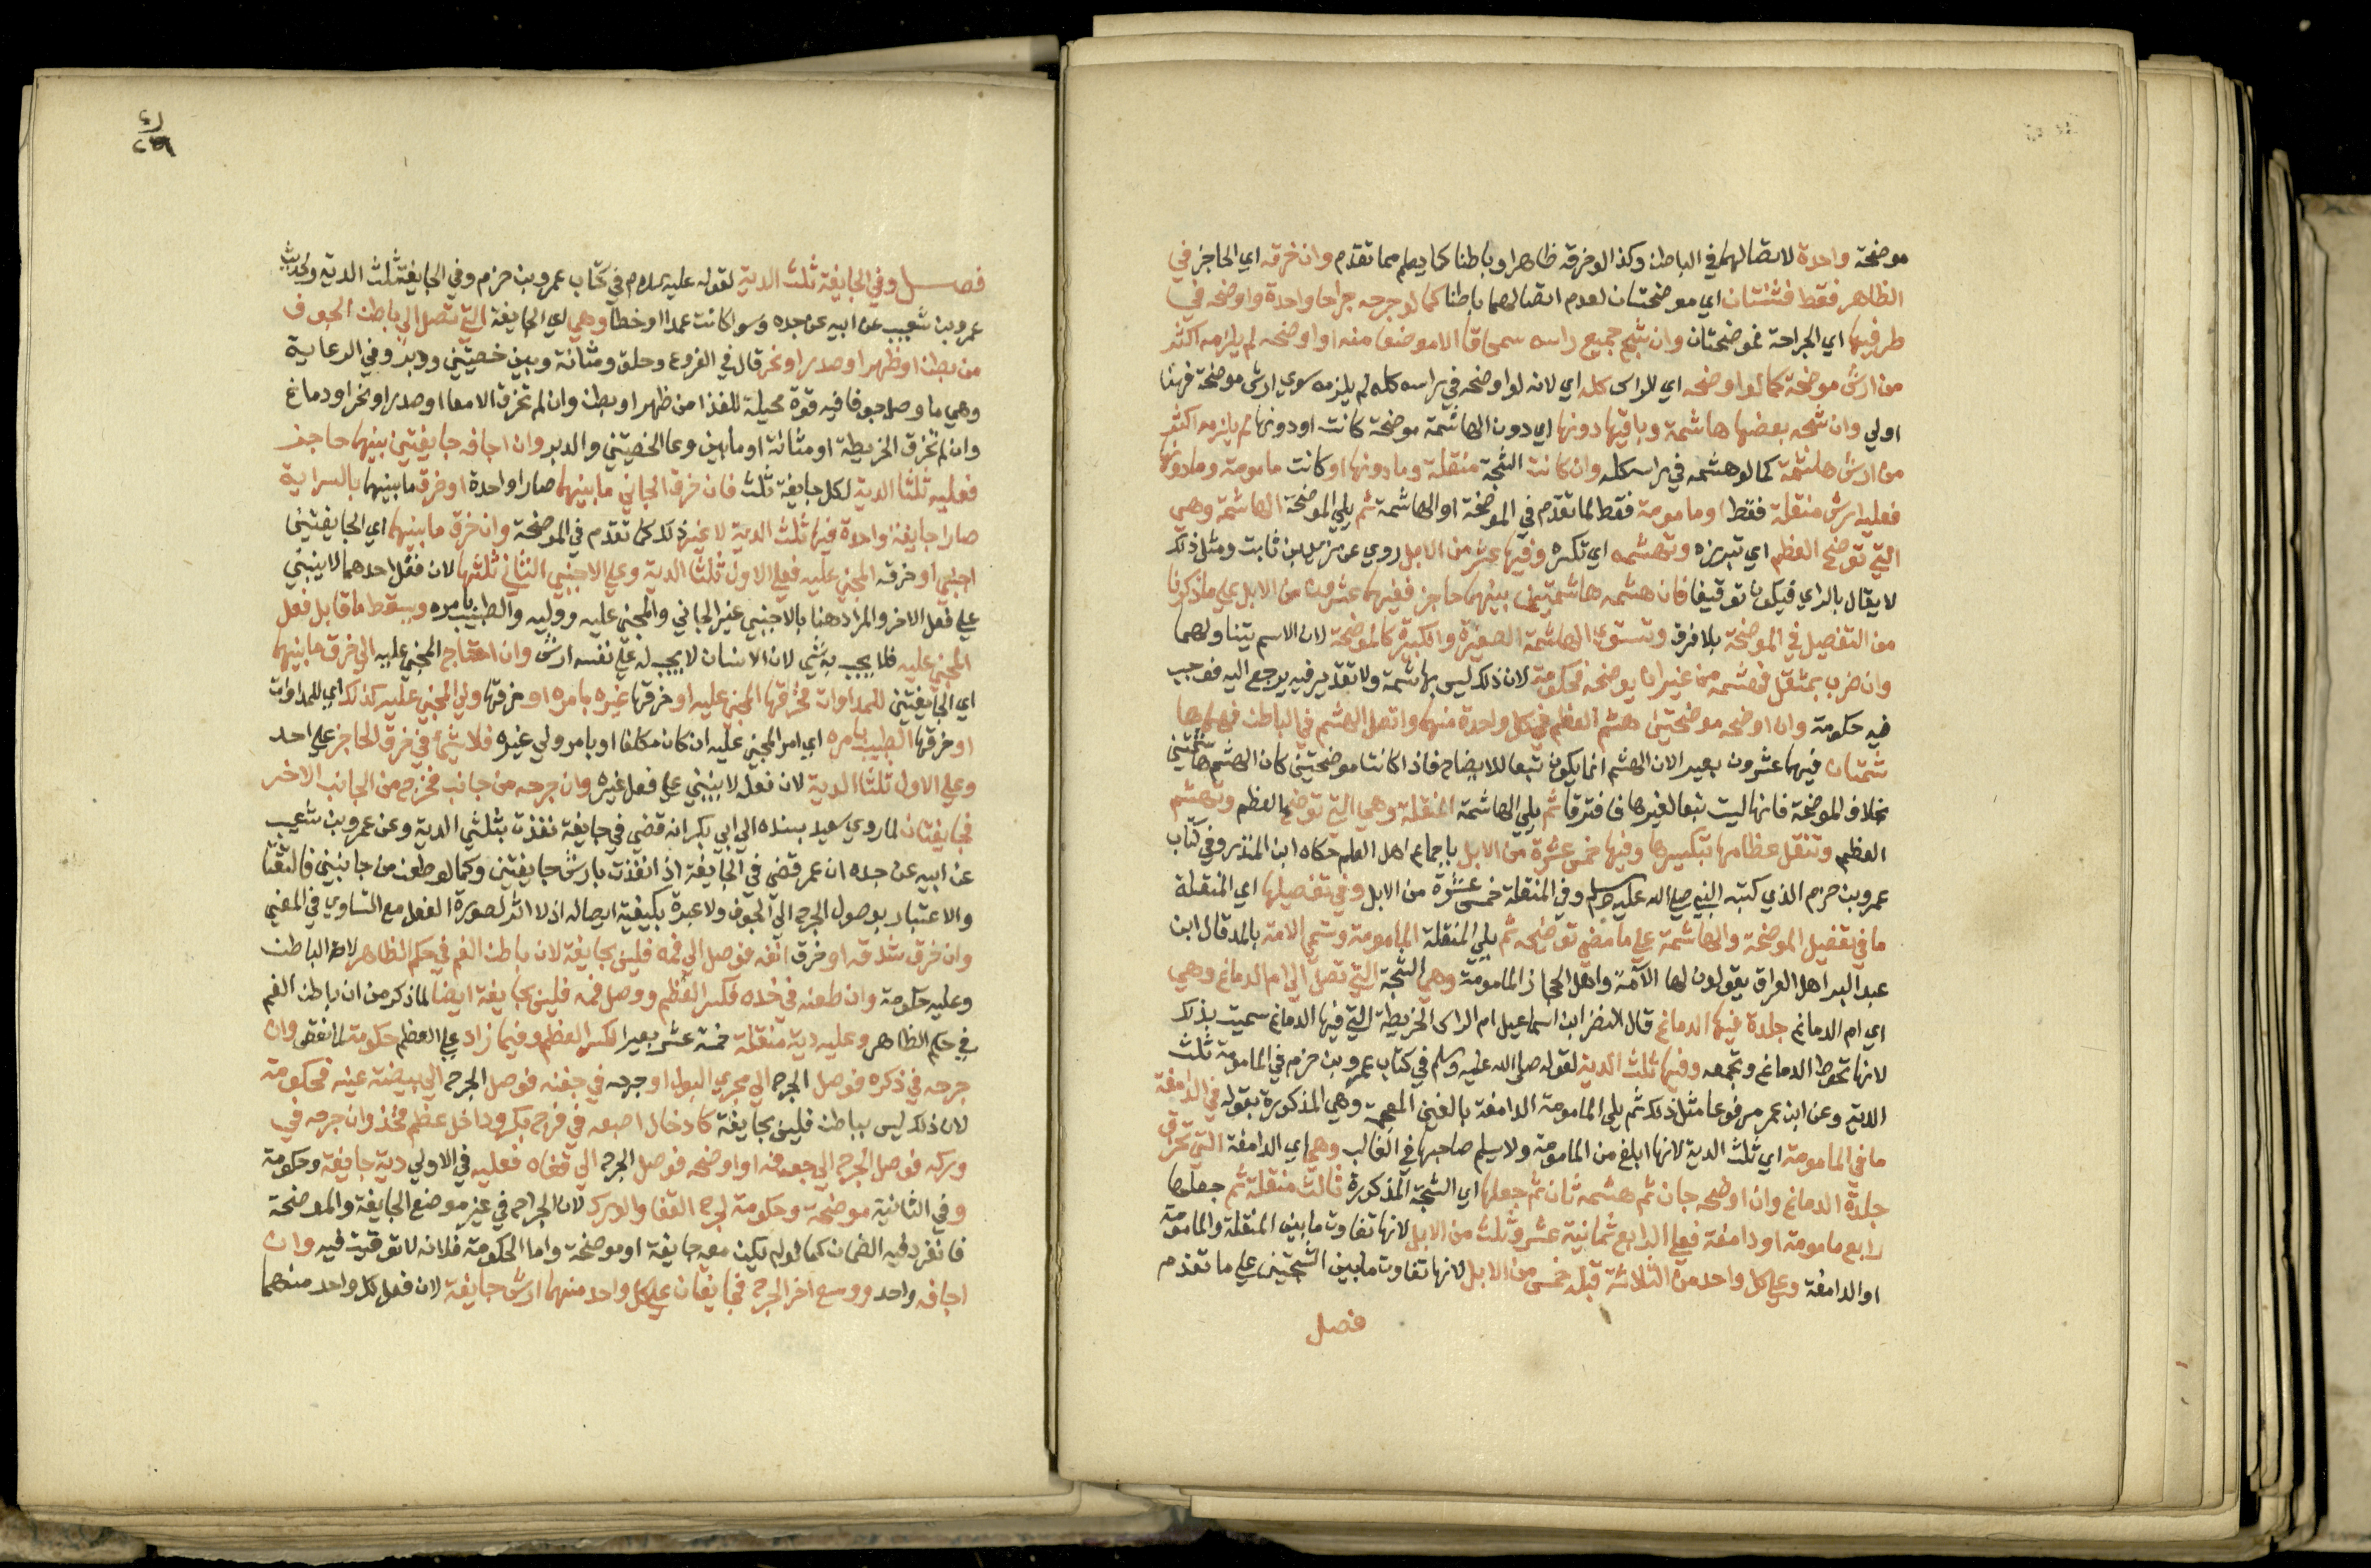 موضحة واحدة لاتصالهما في الباطن وكذا لو خرقه ظاهرا وباطنا كما يعلم مما تقدم وان خرقه اي الحاجز في
الظاهر فقط فثنتان اي موضحتان لعدم اتصالهما باطنا كما لو جرحه جراحا واحدة واوضحه في
طرفيها اي الجراحة فموضحتان وان شج جميع راسه سمحاقا الا موضعا منه اوضحه لم يلزمه اكثر
من ارش موضحة كما لو اوضحه اي الراس كله اي لانه لو اوضحه في راسه كله لم يلزمه سوى ارش موضحة فهنا
اولي وان شجه بعضها هاشمة وباقيها دونها اي دون الهاشمة موضحة كانت او دونها لم يلزمه اكثر
من ارش هاشمة كما لو هشمه في راسه كله وان كانت الشجة منقلة وما دونها او كانت مامومة وما دونها
فعليه ارش منقلة فقط او مامومة فقط لما تقدم في الموضحة او الهاشمة ثم يلي الموضحة الهاشمة وهي
التي توضح العظم اي تبرزه وتهشمه اي تكسره وفيها عشر من الابل روي عن زيد بن ثابت ومثل ذلك
لا يقال بالراي فيكون توقيفا فان هشمه هاشمتين بينهما حاجز ففيهما عشرون من الابل علي ما ذكرنا
من التفصيل في الموضحة بلا فرق وتستوي الهاشمة الصغيرة والكبيرة كالموضحة لان الاسم يتناولهما
وان ضرب بمثقل فهشمه من غير ان يوضحه فحكومة لان ذلك ليس بهاشمة ولا تقدير فيه يرجع اليه فوجب
فيه حكومة وان اوضحه موضحتين هشم العظم في كل واحدة منهما واتصل الهشم في الباطن فهما ها
شمتان فيهما عشرون بعيرا لان الهشم انما يكون تبعا للايضاح فاذا كانتا موضحتين كان الهشم هاشمتين
بخلاف الموضحة فانها ليست تبعا لغيرها فافترقا ثم يلي الهاشمة المنقلة وهي التي توضح العظم وتهشم
العظم وتنقل عظامها بتكسيرها وفيها خمس عشرة من الابل باجماع اهل العلم حكاه ابن المنذر وفي كتاب
عمرو بن حزم الذي كتبه النبي صلي الله عليه وسلم وفي المنقلة خمس عشرة من الابل وفي تفصيلها اي المنقلة
ما في تفصيل الموضحة والهاشمة علي ما مضي توضيحه ثم يلي المنقلة المامومة وتسمي الامة بالمد قال ابن
عبد البر اهل العراق يقولون لها الآمة واهل الحجاز المامومة وهي الشجة التي تصل الي ام الدماغ وهي
اي ام الدماغ جلدة فيها الدماغ قال النضر ابن اسماعيل ام الراس الخريطة التي فيها الدماغ سميت بذلك
لانها تحوط الدماغ وتجمعه وفيها ثلث الدية لقوله صلي الله عليه وسلم في كتاب عمرو بن حزم في المامومة ثلث
الدية وعن ابن عمر مرفوعا مثل ذلك ثم يلي المامومة الدامغة بالغين المعجمة وهي المذكورة بقوله في الدامغة
ما في المامومة اي ثلث الدية لانها ابلغ من المامومة ولا يسلم صاحبها في الغالب وهي اي الدامغة التي تخرق
جلدة الدماغ وان اوضحه جان ثم هشمه ثان ثم جعلها اي الشجة المذكورة ثالث منقلة ثم جعلها
رابع مامومة او دامغة فعلي الرابع ثمانية عشر وثلث من الابل لانها تفاوت ما بين المنقلة والمامومة
او الدامغة وعلي كل واحد من الثلاثة قبله خمس من الابل لانها تفاوت ما بين الشجتين علي ما تقدم
فصل
فصل وفي الجايفة ثلث الدية لقوله عليه السلام في كتاب عمرو بن حزم وفي الجايفة ثلث الدية ولحديث
عمرو بن شعيب عن ابيه عن جده وسوا كانت عمدا او خطأ وهي اي الجايفة التي تصل الي باطن الجوف
من بطن او ظهر او صدر او نحر قال في الفروع وحلق ومثانة وبين خصيتين ودبر وفي الرعاية
وهي ما وصل جوفا فيه قوة محيلة للغذا من ظهر او بطن وان لم تخرق الامعا او صدر او نحر او دماغ
وان لم تخرق الخريطة او مثانة او ما بين وعا الخصيتين والدبر وان اجافه جايفتين بينهما حاجز
فعليه ثلثا الدية لكل جايفة ثلث فان خرق الجاني ما بينهما صارا واحدة او خرق ما بينهما بالسراية
صارا جايفة واحدة فيها ثلث الدية لا غير ذلك كما تقدم في الموضحة وان خرق ما بينهما اي الجايفتين
اجنبي او خرقه المجني عليه فعلي الاول ثلثا الدية وعلي الاجنبي الثاني ثلثها لان فعل احدهما لا ينبني
علي فعل الاخر والمراد هنا بالاجنبي غير الجاني والمجني عليه ووليه والطبيب بامره ويسقط ما قابل فعل
المجني عليه فلا يجب به شي لان الانسان لا يجب له علي نفسه ارش وان احتاج المجني عليه الي خرق ما بينهما
اي الجايفتين للمداوات فخرقها المجني عليه او خرقها غيره بامره او خرقها ولي المجني عليه كذلك اي للمداوات
او خرقها الطبيب بامره اي امر المجني عليه ان كان مكلفا او بامر ولي غيره فلا شيء في خرق الحاجز علي احد
وعلي الاول ثلثا الدية لان فعله لا ينبني علي فعل غيره وان جرحه من جانب فخرج من الجانب الاخر
فجايفتان لما روي سعيد بسنده الي ابي بكر انه قضي في جايفة نفذت بثلثي الدية وعن عمرو بن شعيب
عن ابيه عن جده ان عمر قضي في الجايفة اذا نفذت بارش جايفتين وكما لو طعن من جانبين فالتقتا
والاعتبار بوصول الجرح الي الجوف ولا عبرة بكيفية ايصاله اذ لا اثر لصورة الفعل مع التساوي في المعني
وان خرق شدقه او خرق انفه فوصل الي فمه فليس بجايفة لان باطن الفم في حكم الظاهر لا الباطن
وعليه حكومة وان طعنه في خده فكسر العظم ووصل فمه فليس بجايفة ايضا لما ذكر من ان باطن الفم
في حكم الظاهر وعليه دية منقلة خمسة عشر بعيرا لكسر العظم وفيما زاد علي العظم حكومة وان
جرحه في ذكره فوصل الجرح الي مجري البول او جرحه في جفنه فوصل الجرح الي بيضة عينه فحكومة
لان ذلك ليس بباطن فليس بجايفة كادخال اصبعه في فرج بكر وداخل عظم فخذ وان جرحه في
وركه فوصل الجرح الي جوفه او اوضحه فوصل الجرح الي قفاه فعليه في الاولي دية جايفة وحكومة
وفي الثانية موضحة وحكومة لجرح القفا والورك لان الجراح في غير موضع الجايفة والموضحة
فانفرد فيه الضمان كما لو لم يكن معه جايفة او موضحة واما الحكومة فلانه لا توقيت فيه وان
اجافه واحد ووسع اخر الجرح فجايفتان علي كل واحد منهما ارش جايفة لان فعل كل واحد منهما